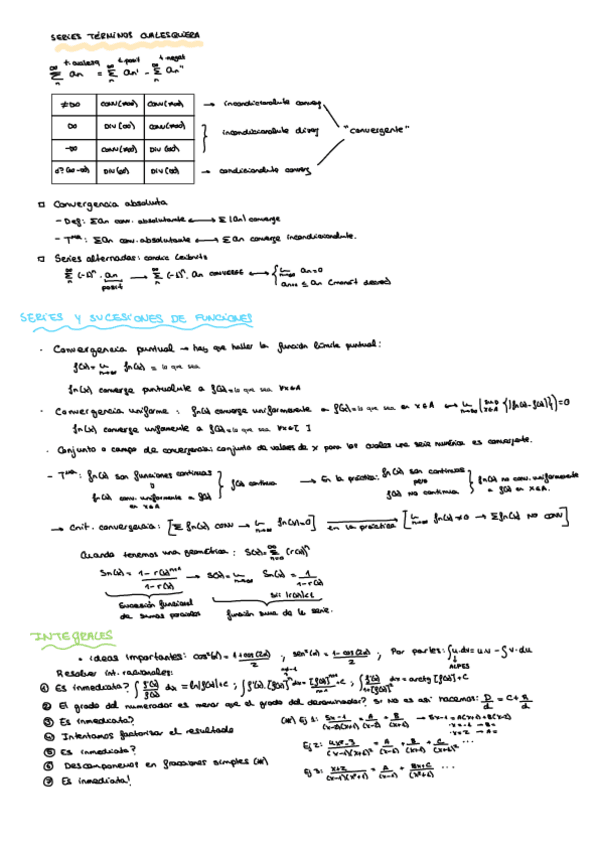 SERIES TÉRMINOS CUALESQUIERA
t. cualesq t. posit t. negat
∑ an = ∑ an' - ∑ an''
≠∞ CONV (nod) CONV (nod) → incondicionalmte converg
∞ DIV (∞) CONV (nod) incondicionalmte diverg "convergente"
-∞ CONV (nod) DIV (∞)
d? (∞-∞) DIV (∞) DIV (∞) → condicionalmte converg
□ Convergencia absoluta
- Def: ∑an conv. absolutamte ⟷ ∑ |an| converge
- Tma: ∑an conv. absolutamte ⟷ ∑ an converge incondicionalmte.
□ Series alternadas: condic Leibnitz
∑ (-1)ⁿ · an → ∑ (-1)ⁿ · an converge ⟷ { Lim an = 0
posit an+1 ≤ an (monót decrec)
SERIES Y SUCESIONES DE FUNCIONES
· Convergencia puntual → hay que hallar la función límite puntual:
f(x) = Lim fn(x) = lo que sea
fn(x) converge puntualmte a f(x) = lo que sea ∀x∈A
· Convergencia uniforme: fn(x) converge uniformemente a f(x) = lo que sea en x∈A ⟷ Lim (sup {|fn(x)-f(x)|}) = 0
fn(x) converge unifomente a f(x) = lo que sea ∀x∈[ ]
· Conjunto o campo de convergencia: conjunto de valores de x para los cuales una serie numérica es convergente.
- Tma: fn(x) son funciones continuas
y
fn(x) conv. uniformemente a f(x) en x∈A } f(x) continua → En la práctica: fn(x) son continuas pero f(x) no continua } fn(x) no conv. uniformemente a f(x) en x∈A.
→ Crit. convergencia: [∑ fn(x) CONV → Lim fn(x)=0] en la práctica [Lim fn(x) ≠ 0 → ∑fn(x) NO CONV]
Cuando tenemos una geométrica: S(x) = ∑ (r(x))ⁿ
Sn(x) = 1-r(x)ⁿ⁺¹ / 1-r(x) → S(x) = Lim Sn(x) = 1 / 1-r(x)
sii |r(x)|<1
Sucesión funcional de sumas parciales función suma de la serie.
INTEGRALES
• Ideas importantes: cos²(x) = 1+cos(2x) / 2 ; sen²(x) = 1-cos(2x) / 2 ; Por partes: ∫u·dv = u·v - ∫v·du
ALPES
Resolver int. racionales:
① Es inmediata? ∫ f'(x)/f(x) dx = ln|f(x)|+C ; ∫f'(x)·[f(x)]ⁿ dx = [f(x)]ⁿ⁺¹/n+1 + C ; ∫ f'(x)/1+[f(x)]² dx = arctg [f(x)]+C
② El grado del numerador es menor que el grado del denominador? Si no es así hacemos: D/d = C + R/d
③ Es inmediata?
④ Intentamos factorizar el resultado
⑤ Es inmediata?
⑥ Descomponemos en fracciones simples (*)
⑦ Es inmediata!
(*) Ej 1: 5x-1 / (x-2)(x+1) = A/(x-2) + B/(x+1) → 5x-1 = A(x+1)+B(x-2)
· x=-1 → B=
· x=2 → A=
Ej 2: 4x²-3 / (x-1)(x+6)² = A/(x-1) + B/(x+6) + C/(x+6)² ...
Ej 3: x+2 / (x-1)(x²+6) = A/(x-1) + Bx+C/(x²+6) ...